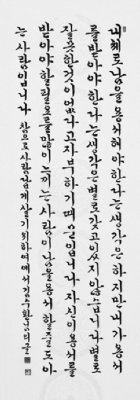 내체로 남을 용서해야 한다는 생각은 하지만 내가 용서
를 받아야 한다는 생각은 별로 갖고 있지 않습니다 별로
잘못한 것이 없다고 자부하기 때문입니다 자신이 용서를
받아야 할 필요를 많이 느끼는 사람이 남을 용서할 줄도 아
는 사람입니다 참으로 사람답게 살기 위하여에서 김수환님의 글